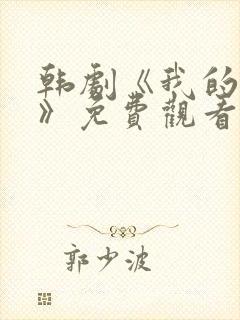 韩劇《我的
》免費觀看
郭少波